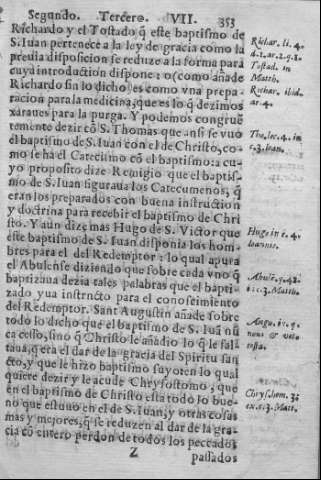 Segundo. Tercero. VII. 353
Richardo y el Tostado q̃ este baptismo de
S. Iuan pertenece a la ley de gracia como la
previa disposicion se reduze a la forma para
cuya introduction dispone: o (como añade
Richardo sin lo dicho) es como vna prepa-
racion para la medicina, que es lo q̃ dezimos
xaraues para la purga. Y podemos congruẽ
temente dezir cõ S. Thomas que ansi se vuo
el baptismo de S. Iuan con el de Christo, co-
mo se ha el Catecismo cõ el baptismo: a cu-
yo proposito dize Remigio que el baptis-
mo de S. Iuan figuraua los Catecumenos, q̃
eran los preparados con buena instruction
y doctrina para recebir el baptismo de Chri
sto. Y aun dize mas Hugo de S. Victor que
este baptismo de S. Iuan disponia los hom-
bres para el del Redemptor: lo qual apura
el Abulense diziendo que sobre cada vno q̃
baptizaua dezia tales palabras que el bapti-
zado yua instructo para el conoscimiento
del Redemptor. Sant Augustin añade sobre
todo lo dicho que el baptismo de S. Iuã nũ
ca cesso, sino q̃ Christo le añadio lo q̃ le fal-
taua, q̃ era el dar de la gracia del Spiritu san
cto, y que le hizo baptismo suyo ten lo qual
quiere dezir y le acude Chrysostomo; que
en el baptismo de Christo esta todo lo bue-
no que estuuo en el de S. Iuan, y otras cosas
mas y mejores, q̃ se reduzen al dar de la gra-
cia cõ entero perdon de todos los peccados
Z passados
Richar. li. 4.
d. 2. ar. 2. q. 3.
Tostad. in
Matth.
Richar. ibid.
ar. 4.
Tho. lec. 4. in
c. 3. Ioan.
Hugo in c. 4.
Ioannis.
Abulẽ. q. 42.
in c. 3. Matth.
Augu. in q.
noui & vete.
testa.
Chrysost.
ex. c. 3. Matt.